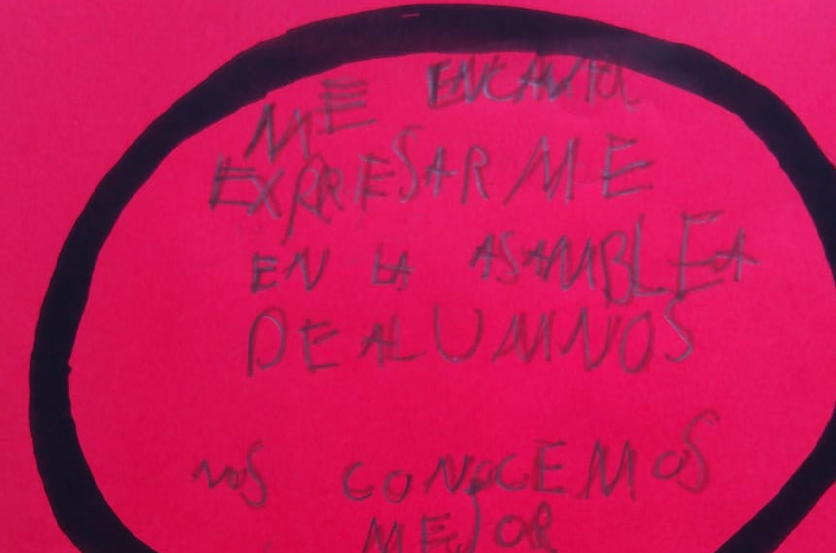 ME ENCANTA
EXPRESARME
EN LA ASAMBLEA
DE ALUMNOS
NOS CONOCEMOS
MEJOR